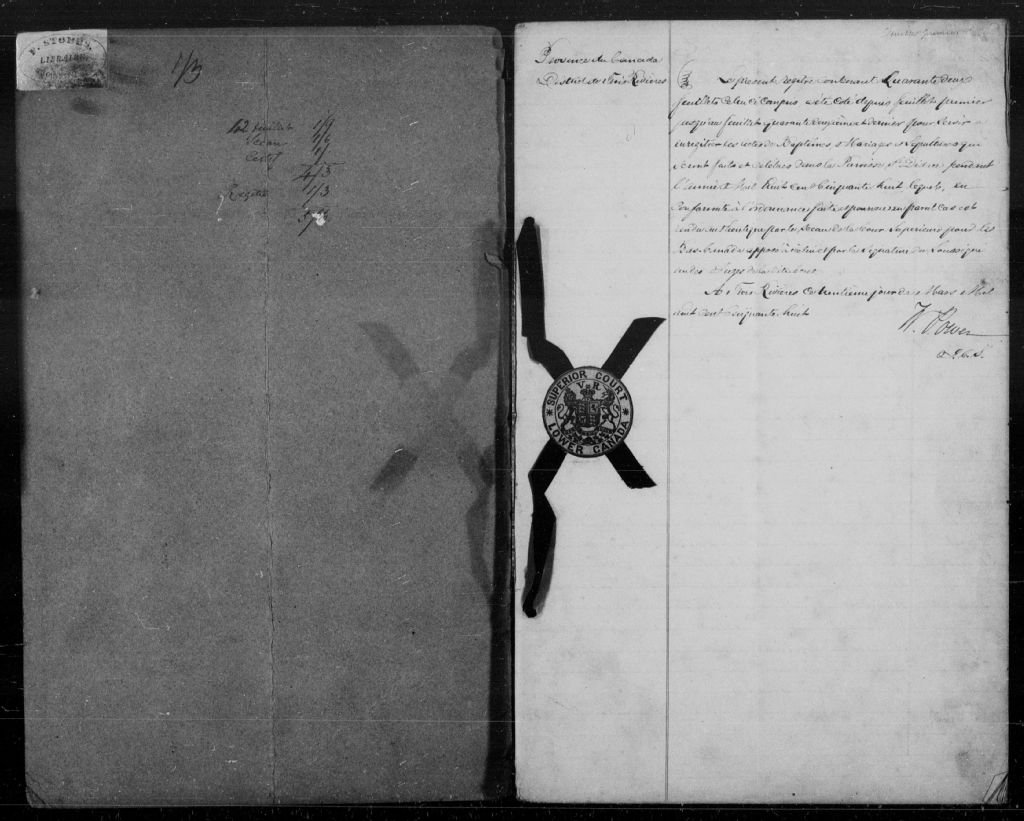 P. STOBBS,
LIBRAIRE,
1/3
42 feuillets 1/9
Sceau
Certif
4/3
Registre 1/3
feuillet premier
Province du Canada
District des Trois Rivières
Le présent registre contenant Quarante deux
feuillets celui ci compris a été coté depuis feuillet premier
jusqu'au feuillet quarante deuxième et dernier pour servir a
enregistrer les actes de Baptêmes, Mariages & Sépultures qui
seront faits et célébrés dans la Paroisse St Didace pendant
l'année Mil huit cent Cinquante huit lequel, en
conformité à l'ordonnance faite et pourvue en pareil cas est
rendu authentique par le Sceau de la Cour Supérieure pour le
Bas Canada apposé à icelui et par la Signature du Soussigné
un des Juges de la dite Cour
Aux Trois Rivières Ce trentième jour de Mars Mil
huit Cent Cinquante huit
W. Power
J. C. S.
SUPERIOR COURT
V R
LOWER CANADA